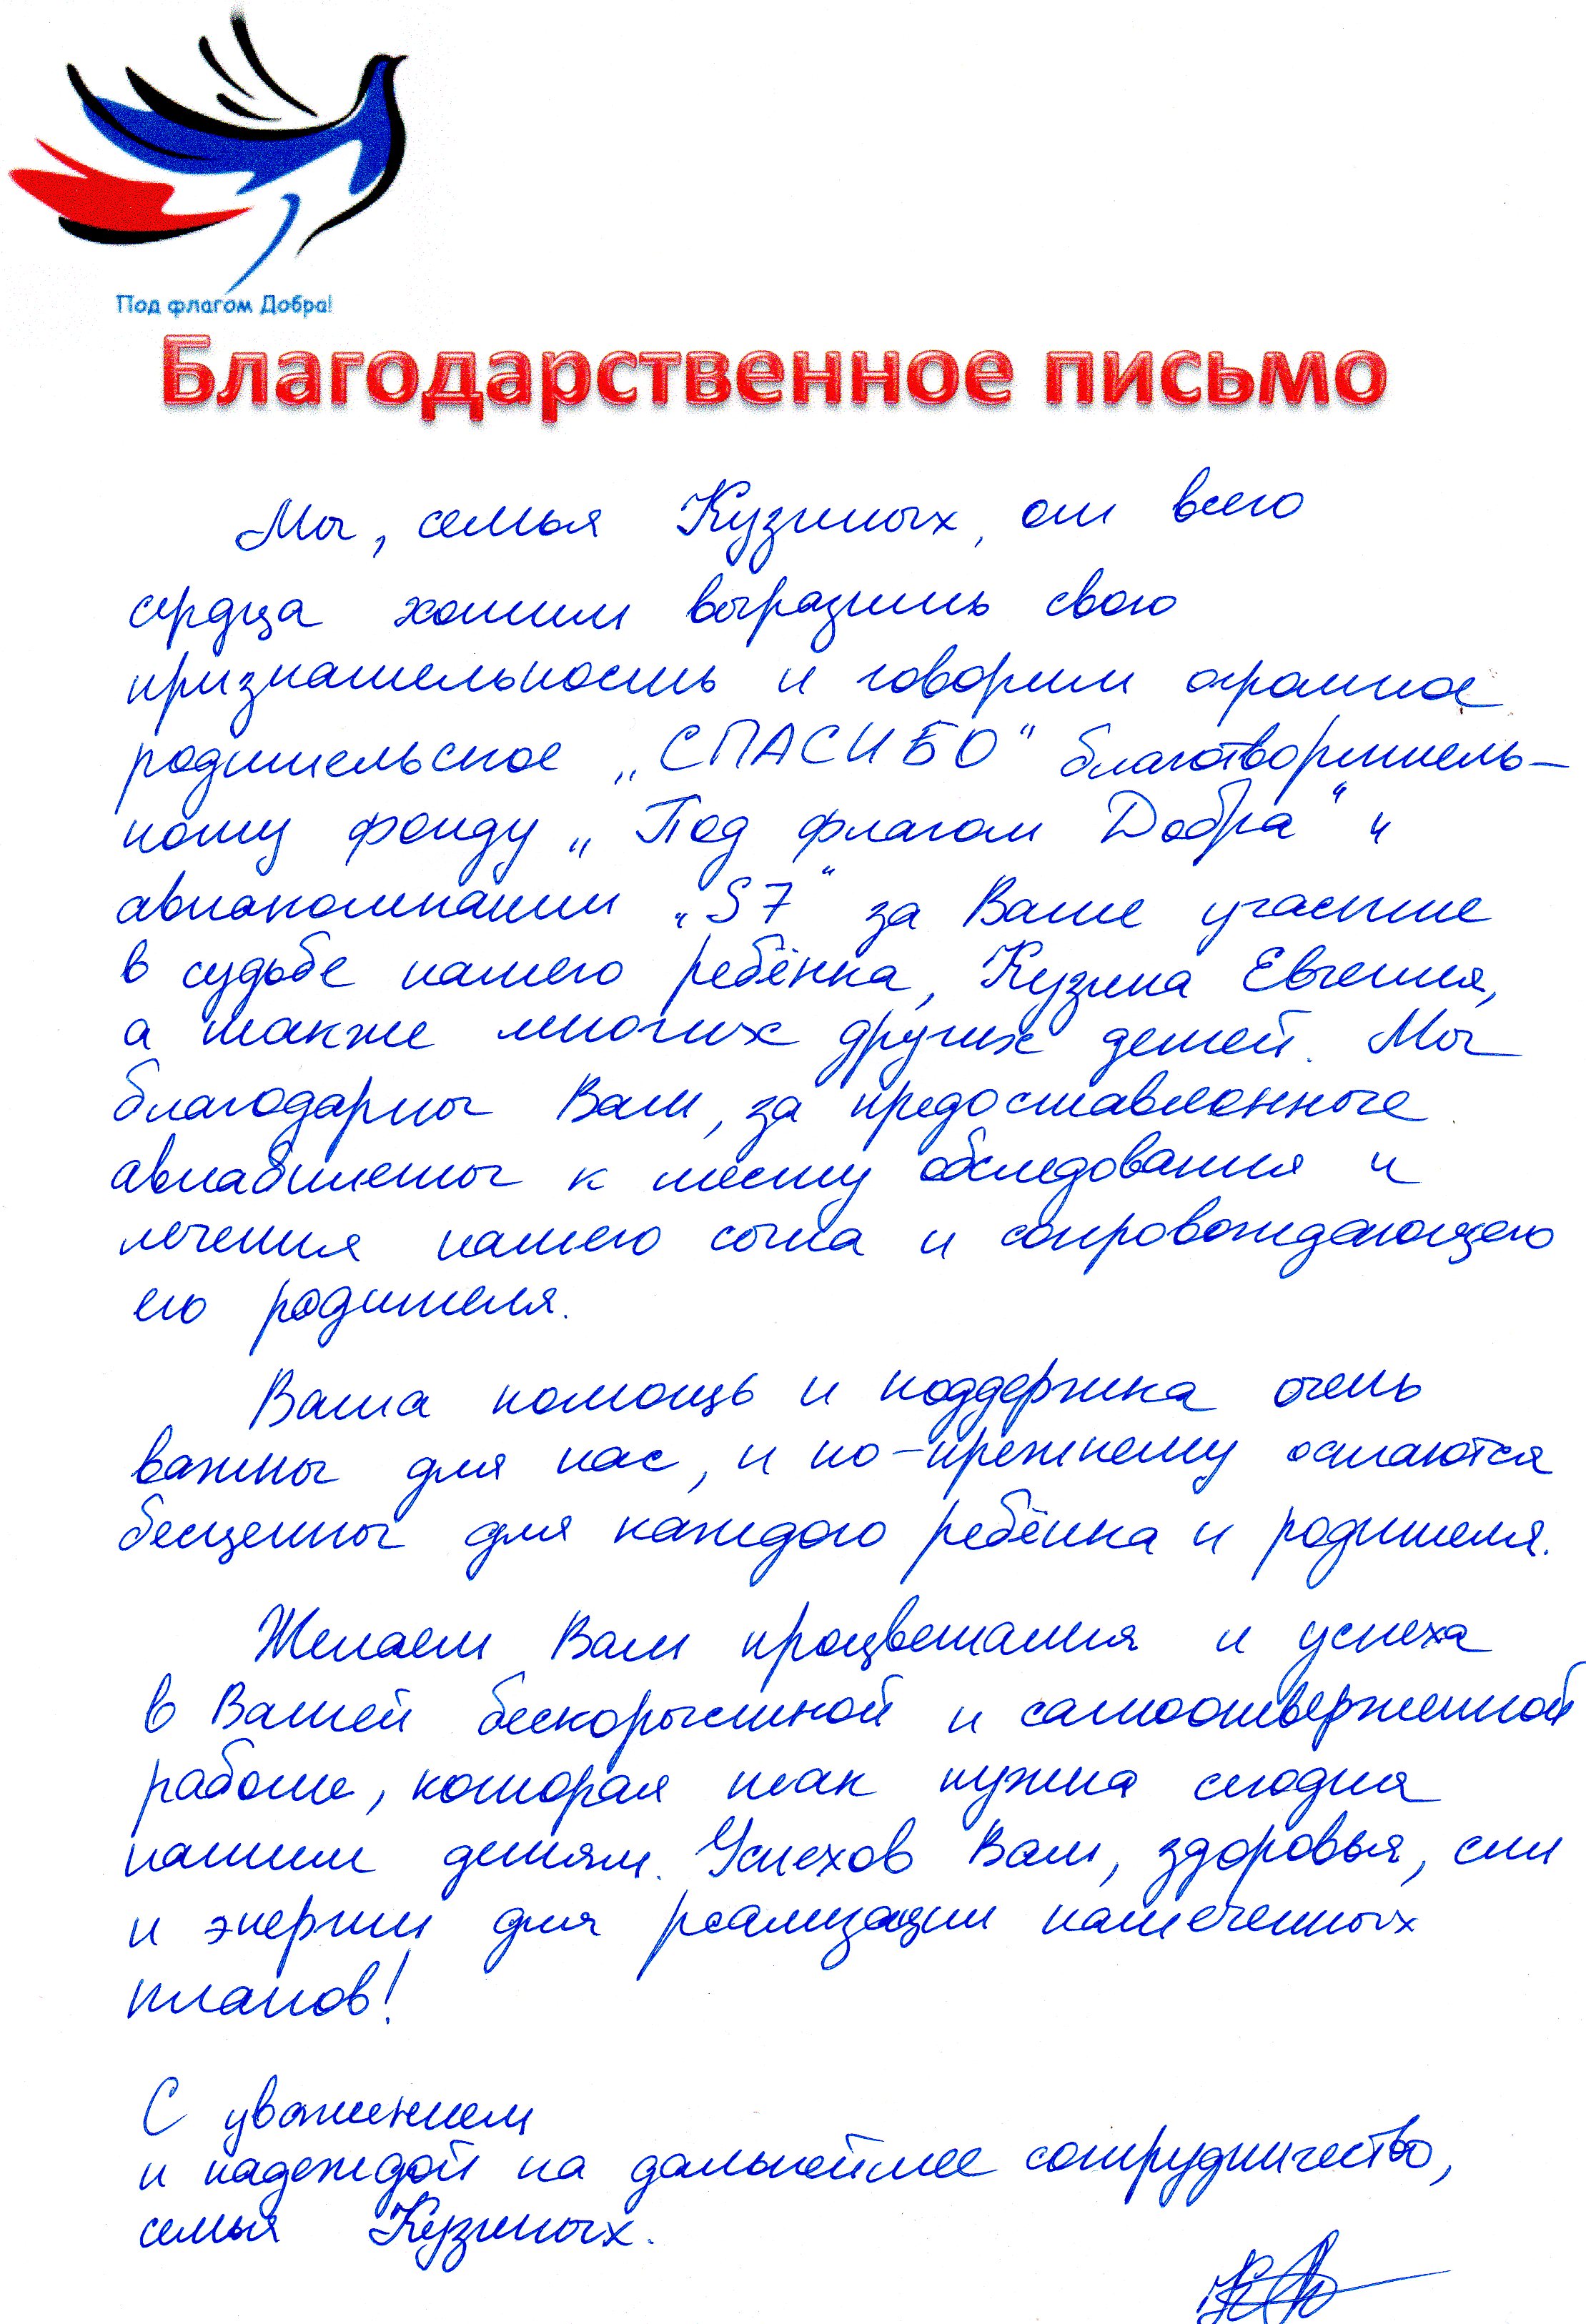 Под флагом Добра!
Благодарственное письмо
Мы, семья Кузиных, от всего
сердца хотим выразить свою
признательность и говорим огромное
родительское „СПАСИБО“ благотворитель-
ному фонду „Под флагом Добра“ и
авиакомпании „S7“ за Ваше участие
в судьбе нашего ребёнка, Кузина Евгения,
а также многих других детей. Мы
благодарны Вам, за предоставленные
авиабилеты к месту обследования и
лечения нашего сына и сопровождающего
его родителя.
Ваша помощь и поддержка очень
важны для нас, и по-прежнему остаются
бесценны для каждого ребёнка и родителя.
Желаем Вам процветания и успеха
в Вашей бескорыстной и самоотверженной
работе, которая так нужна сегодня
нашим детям. Успехов Вам, здоровья, сил
и энергии для реализации намеченных
планов!
С уважением
и надеждой на дальнейшее сотрудничество,
семья Кузиных.